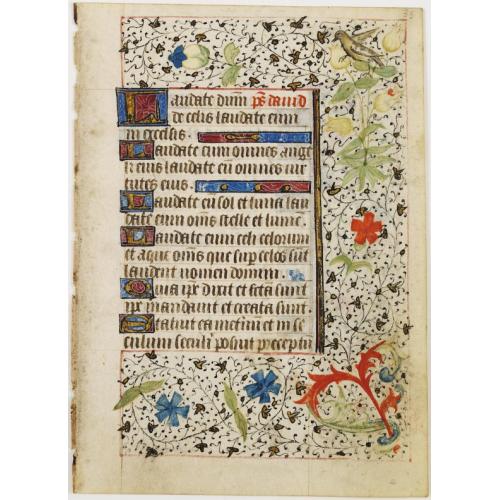 Laudate dnm ps dauid
de celis laudate eum
in excelsis.
Laudate eum omnes ange
li eius laudate eu omnes uir
tutes eius.
Laudate eu sol et luna lau
date eum oms stelle et lume
Laudate eum celi celorum
et aque oms que sup celos sut
laudent nomen domini.
Quia ipe dixit et fcta sunt
ipe mandauit et creata sunt
Statuit ea in eternum et in se
culum seculi posuit preceptu